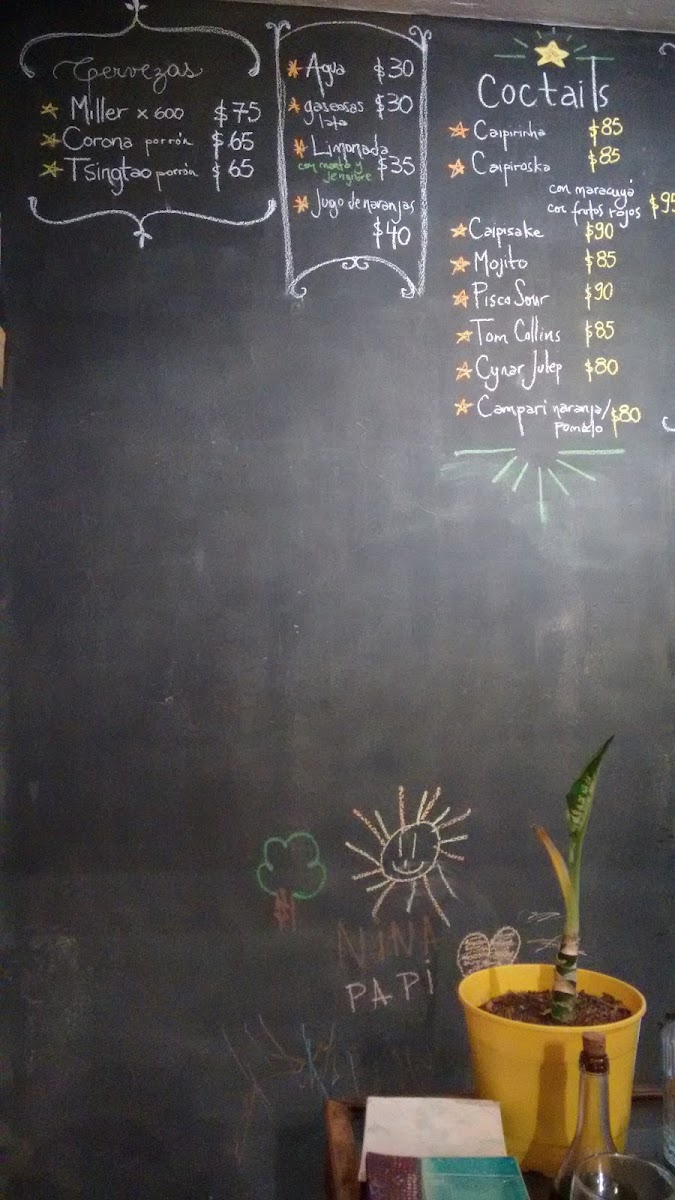 Cervezas
Miller x 600 $75
Corona porrón $65
Tsingtao porrón $65
Agua $30
gaseosas $30
lata
Limonada
con menta y $35
jengibre
Jugo de naranjas
$40
Coctails
Caipirinha $85
Caipiroska $85
con maracuyá
con frutos rojos $95
Caipisake $90
Mojito $85
Pisco Sour $90
Tom Collins $85
Cynar Julep $80
Campari naranja/ $80
pomelo
NINA
PAPi